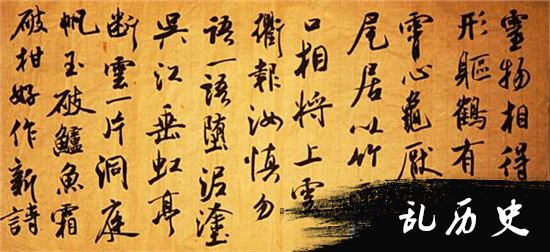 靈物相得
形軀鶴有
霄心龜厭
尾居以竹
口相將上雲
衢報汝慎勿
語一語墮泥塗
吳江垂虹亭
斷雲一片洞庭
帆玉破鱸魚霜
破柑好作新詩
乱历史